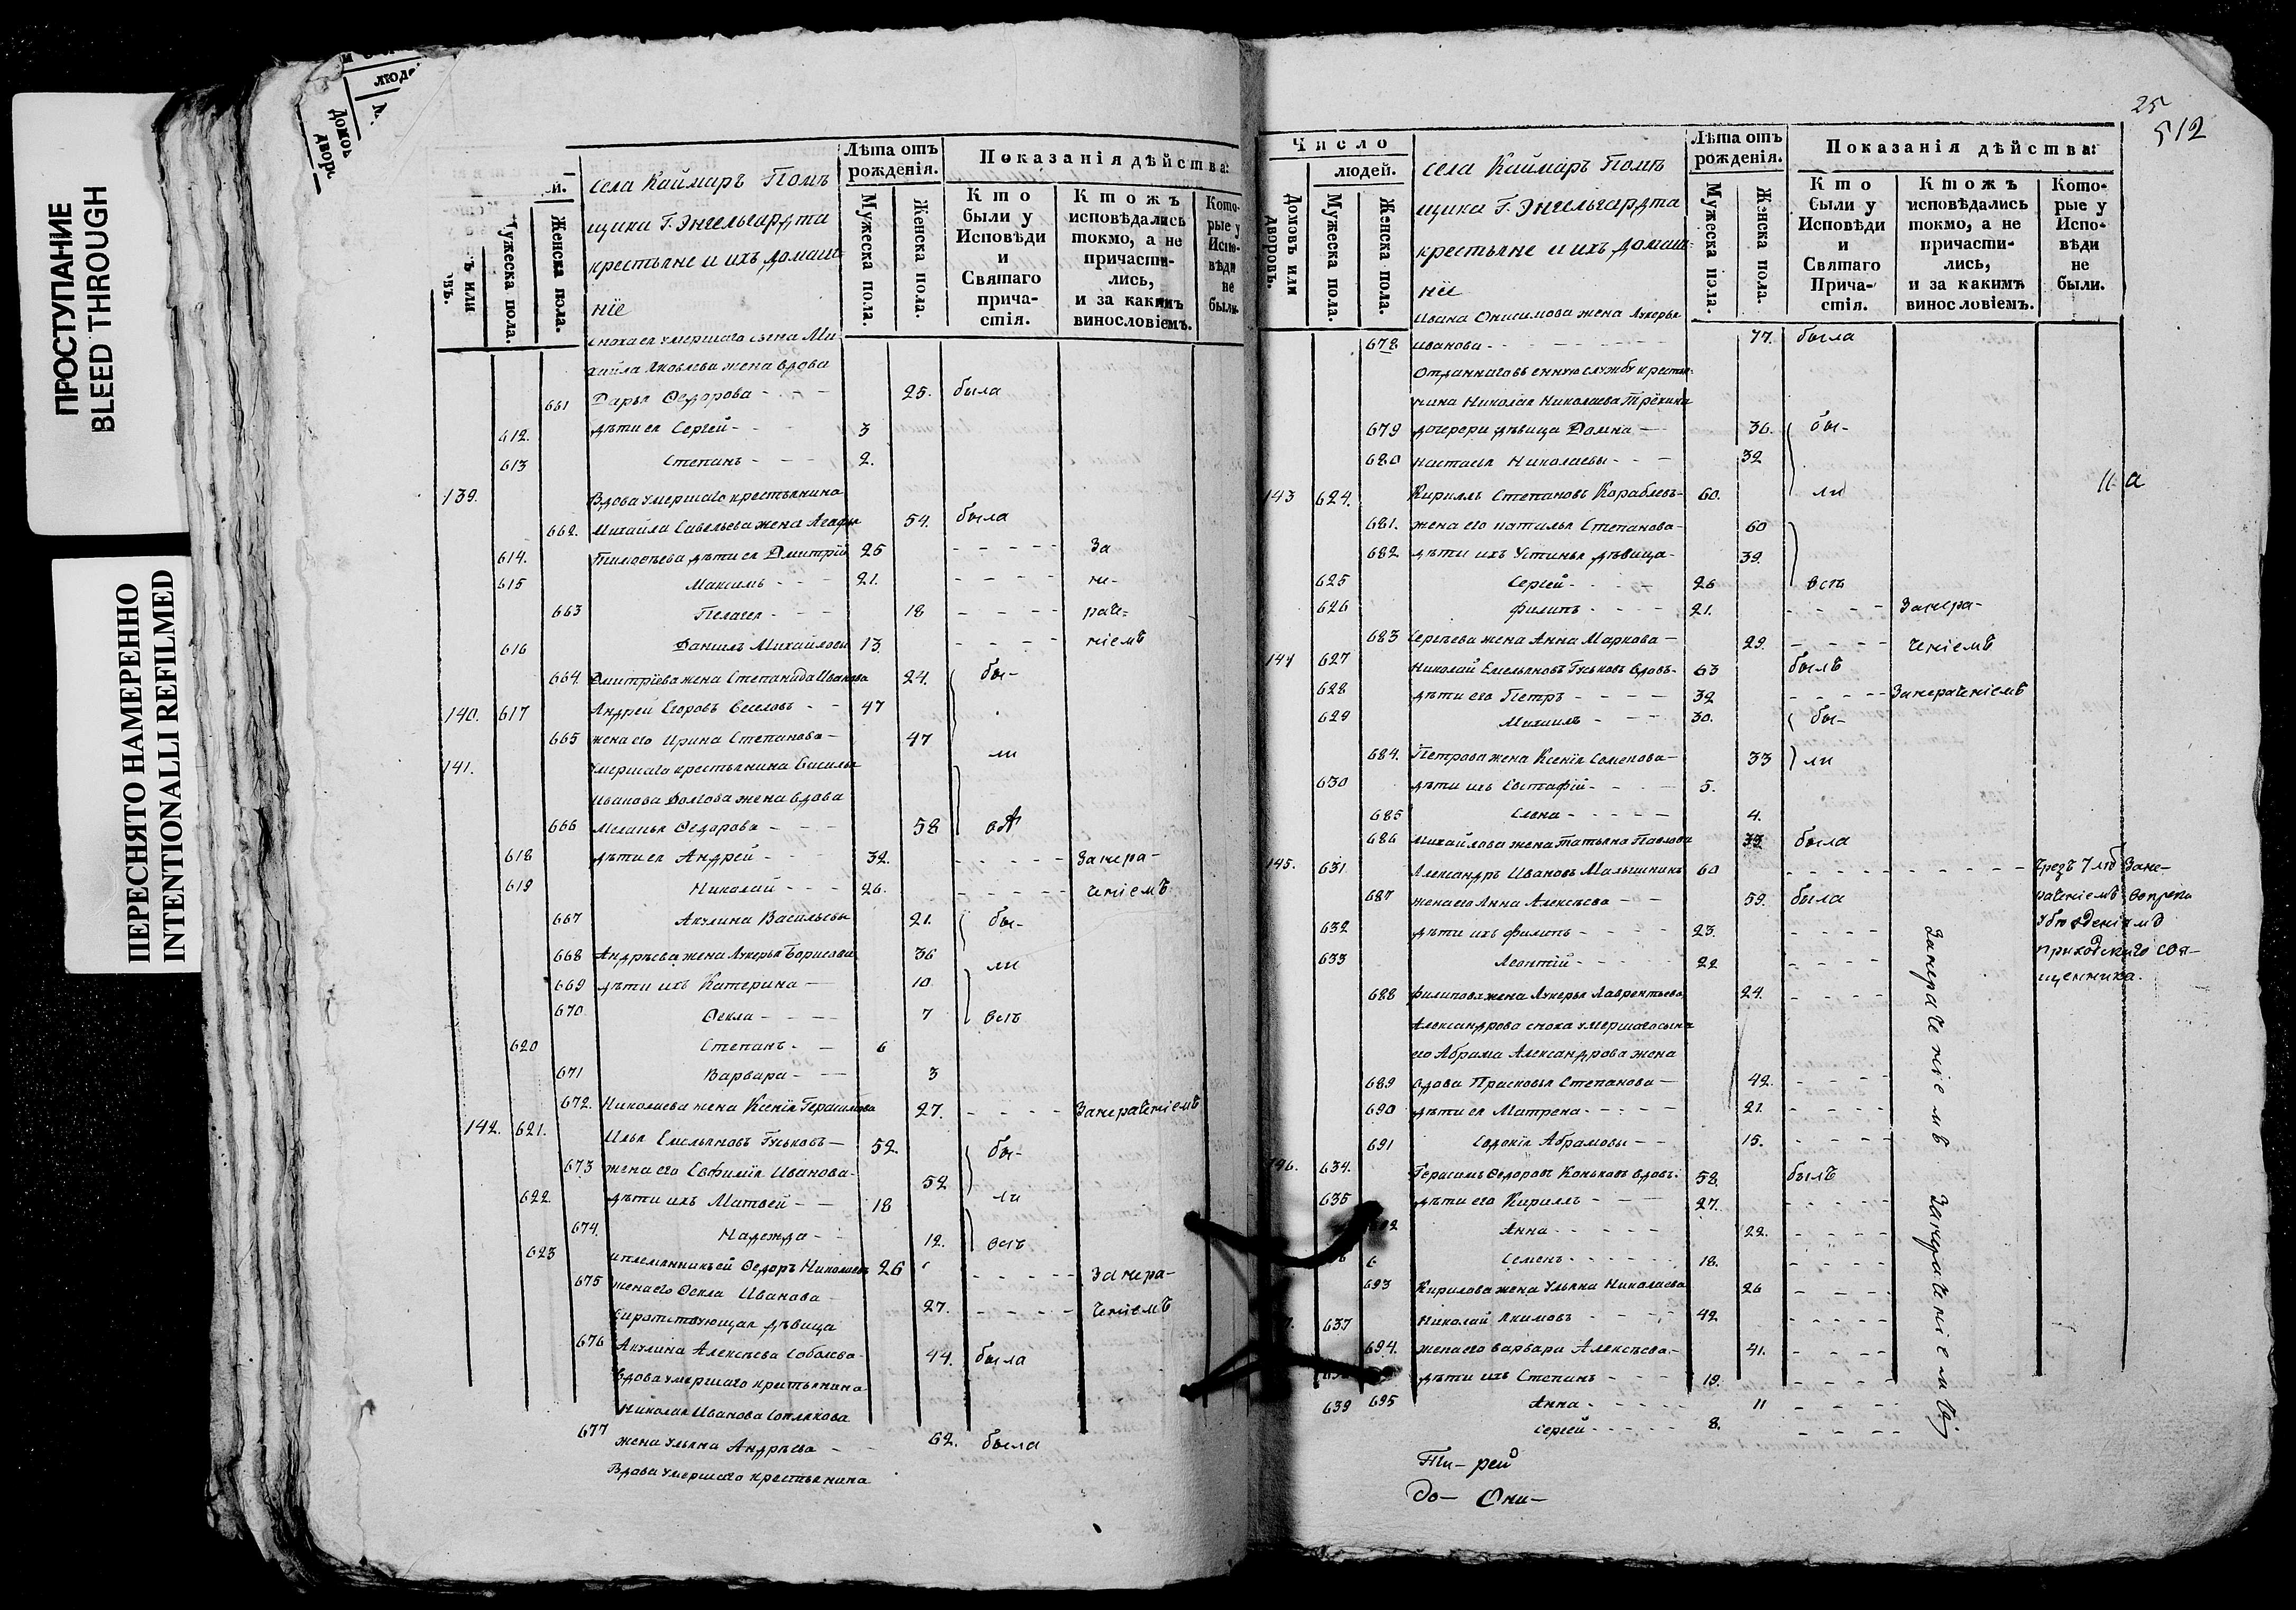 ПРОСТУПАНИЕ
BLEED THROUGH
ПЕРЕСНЯТО НАМЕРЕННО
INTENTIONALLI REFILMED
людей. Женска пола.
села Каймаръ Помѣ
щика Г. Энгельгардта
крестьяне и ихъ домаш
нiе
Лѣта отъ рожденiя.
Мужеска пола. Женска пола.
Показанiя дѣйства:
Кто были у Исповѣди и Святаго причастiя.
Ктожъ исповѣдались токмо, а не причастились, и за какимъ винословiемъ.
Которые у Исповѣди не были.
сноха ея умершаго сына Ми-
хайла Яковлева жена вдова
661 Дарья Ѳедорова - - - 25. была
612. дѣти ея Сергей - - 3
613 Степанъ - - - 2.
139. Вдова умершаго крестьянина
662. Михайла Савельева жена Агафья 54. была
614. Тимоѳеева дѣти ея Дмитрiй 25 - - - - За
615 Максимъ - - - 21. - - - - не-
663 Пелагея - - - 18 - - - - раче-
616 Данилъ Михайловы 13. - - - - нiемъ
664. Дмитрiева жена Степанида Иванова 24. бы-
140. 617 Андрей Егоровъ Веселовъ - - 47
665 жена его Ирина Степанова - 47 ли
141. Умершаго крестьянина Василья
Иванова Долгова жена вдова
666 Меланья Ѳедорова - - - 58
618 дѣти ея Андрей - - - 32. - - - - - Занера-
619 Николай - - - 26. - - - - - ченiемъ
667 Акулина Васильевы 21. бы-
668 Андрѣева жена Лукерья Борисова 36 ли
669 дѣти ихъ Катерина - 10
670 Ѳекла - - - - 7 всѣ
620 Степанъ - - 6
671 Варвара - - - 3
672. Николаева жена Ксенiя Герасимова 27. - - - - Занераченiемъ
142. 621. Илья Емельяновъ Гуськовъ - 52. бы-
673 жена его Евфимiя Иванова - 52
622 дѣти ихъ Матвей - - 18 ли
674. Надежда - - 12. всѣ
623 и племянникъ ей Ѳедоръ Николаевъ 26 - - - - - Занера-
675 жена его Ѳекла Иванова - 27. - - - - ченiемъ
Сиротствующая дѣвица
676 Акулина Алексѣева Соболева - 44. была
Вдова умершаго крестьянина
Николая Иванова
677 жена Ульяна Андрѣева - - 62. была
Вдова умершаго крестьянина
25
512
Число
Домовъ или дворовъ.
людей.
Мужеска пола. Женска пола.
села Каймаръ Помѣ
щика Г. Энгельгардта
крестьяне и ихъ домаш-
нiе
Лѣта отъ рожденiя.
Мужеска пола. Женска пола.
Показанiя дѣйства:
Кто были у Исповѣди и Святаго Причастiя.
Ктожъ исповѣдались токмо, а не причастились, и за какимъ винословiемъ.
Которые у Исповѣди не были.
Ивана Онисимова жена Лукерья
678 Иванова - - - 77. была
Отданнаго въ енную службу крестья-
нина Николая Николаева Трёхина
679 дочрери дѣвица Домна - 36. бы-
680 Настасья Николаевы - - - 32
143 624. Кириллъ Степановъ Кораблевъ - 60. ли
681. жена его Наталья Степанова - 60
682 дѣти ихъ Устинья дѣвица - 39.
625 Сергей - - - 26 всѣ
626 Филипъ - - - 21. - - - - Занера-
683 Сергѣева жена Анна Маркова - 29. - - - - ченiемъ
144 627 Николай Емельяновъ Гуськовъ вдовъ - 63 былъ
628 дѣти его Петръ - - - - 32 - - - - Занераченiемъ
629 Михаилъ - - - 30. бы-
684. Петрова жена Ксенiя Семенова - 33 ли
630 дѣти ихъ Евстафiй - - - 5.
685 Елена - - - - - 4.
686 Михайлова жена Татьяна Павлова 33 была
145. 631. Александръ Ивановъ Малышкинъ 60 - - - - - Чрезъ 7 лѣтъ Зане-
687 жена его Анна Алексѣева - - 59. была раченiемъ вопреки
632 дѣти ихъ Филипъ - - - - 23. - - - - убѣжденiямъ
633 Леонтiй - - - - 22 - - - - приходскаго свя-
щенника.
688 Филипова жена Лукерья Лаврентьева 24. - - - -
Александрова сноха умершаго сына
его Абрама Александрова жена
689 вдова Прасковья Степанова - 42. - - - -
690 дѣти ея Матрена - - - - 21. - - - -
691 Евдокiя Абрамовы - - 15. - - - -
Занераченiемъ
146. 634. Герасимъ Ѳедоровъ Коньковъ вдовъ - 58. былъ
635 дѣти его Кириллъ - - - 27. - - - -
Анна - - - - - 22. - - - -
Семенъ - - - - 18. - - - -
693 Кирилова жена Ульяна Николаева 26 - - - -
637 Николай Якимовъ - - - - 42 - - - -
694. жена его Варвара Алексѣева - 41. - - - -
дѣти ихъ Степанъ - - - 19. - - - -
695 Анна - - - - 11 - - - -
639 Сергей - - - - 8. - - - -
Занераченiемъ
11 а
до - Они-